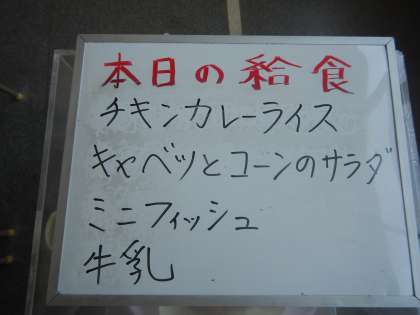 本日の給食
チキンカレーライス
キャベツとコーンのサラダ
ミニフィッシュ
牛乳